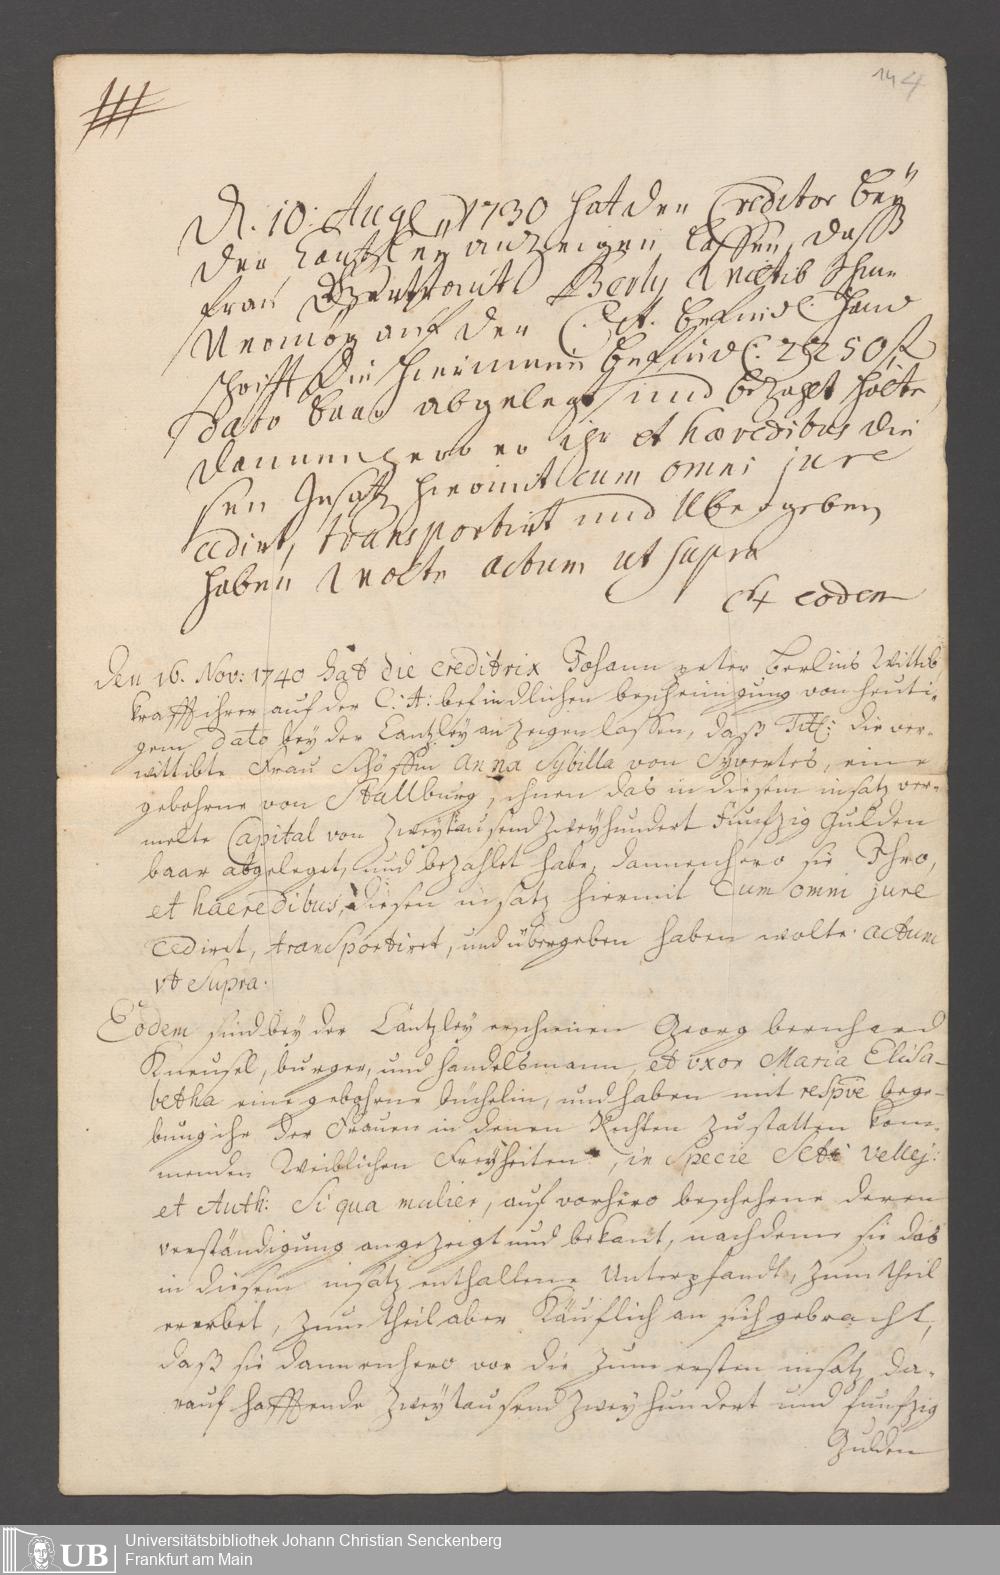 144
D. 10. Aug. 1730 hat der Creditor bey
der Cantzley anzeigen lassen, daß
Frau Berly Wittib
Vermög auf der C. A. befindl. Hand
schrifft die hierinnen befindl. 2250 f
dato baar abgelegt und bezahlt hätte
dannenhero er ihr et haeredibus die
sen Insatz hiermit cum omni jure
cedirt, transportirt und übergeben
haben wolte actum ut supra
eodem
Den 16. Nov: 1740 hat die Creditrix Johann peter Berlins Wittib,
krafft ihrer auf der C: A: befindlichen bescheinigung von heuti-
gem dato bey der Cantzley anzeigen lassen, daß Titl: die ver-
wittibte Frau Schöffin Anna Sybilla von Syvertes, eine
gebohrne von Stallburg, ihnen das in diesem insatz ver-
melte Capital von Zweytausend Zweyhundert Funfzig Gulden
baar abgeleget, und bezahlet habe, dannenhero sie Ihro,
et haeredibus, diesen insatz hiermit Cum omni jure
cediret, transportiret, und übergeben haben wolte. actum
vt Supra.
Eodem sind bey der Cantzley erschienen Georg bernhard
Kneusel, burger, und handelsmann, et vxor Maria Elisa-
betha eine gebohrne büchelin, und haben mit respve bege-
bung ihr der Frauen in denen Rechten zu statten kom-
menden Weiblichen Freyheiten, in Specie Scti Vellej:
et Auth: Si qua mulier, auf vorhero beschehene deren
verständigung angezeigt und bekant, nachdeme sie das
in diesem insatz enthaltene Unterpfandt, zum theil
ererbet, zum theil aber Käuflich an sich gebracht,
daß sie dannenhero vor die zum ersten insatz da-
rauf hafftende Zweytausend Zweyhundert und funfzig
Gulden
UB
Universitätsbibliothek Johann Christian Senckenberg
Frankfurt am Main